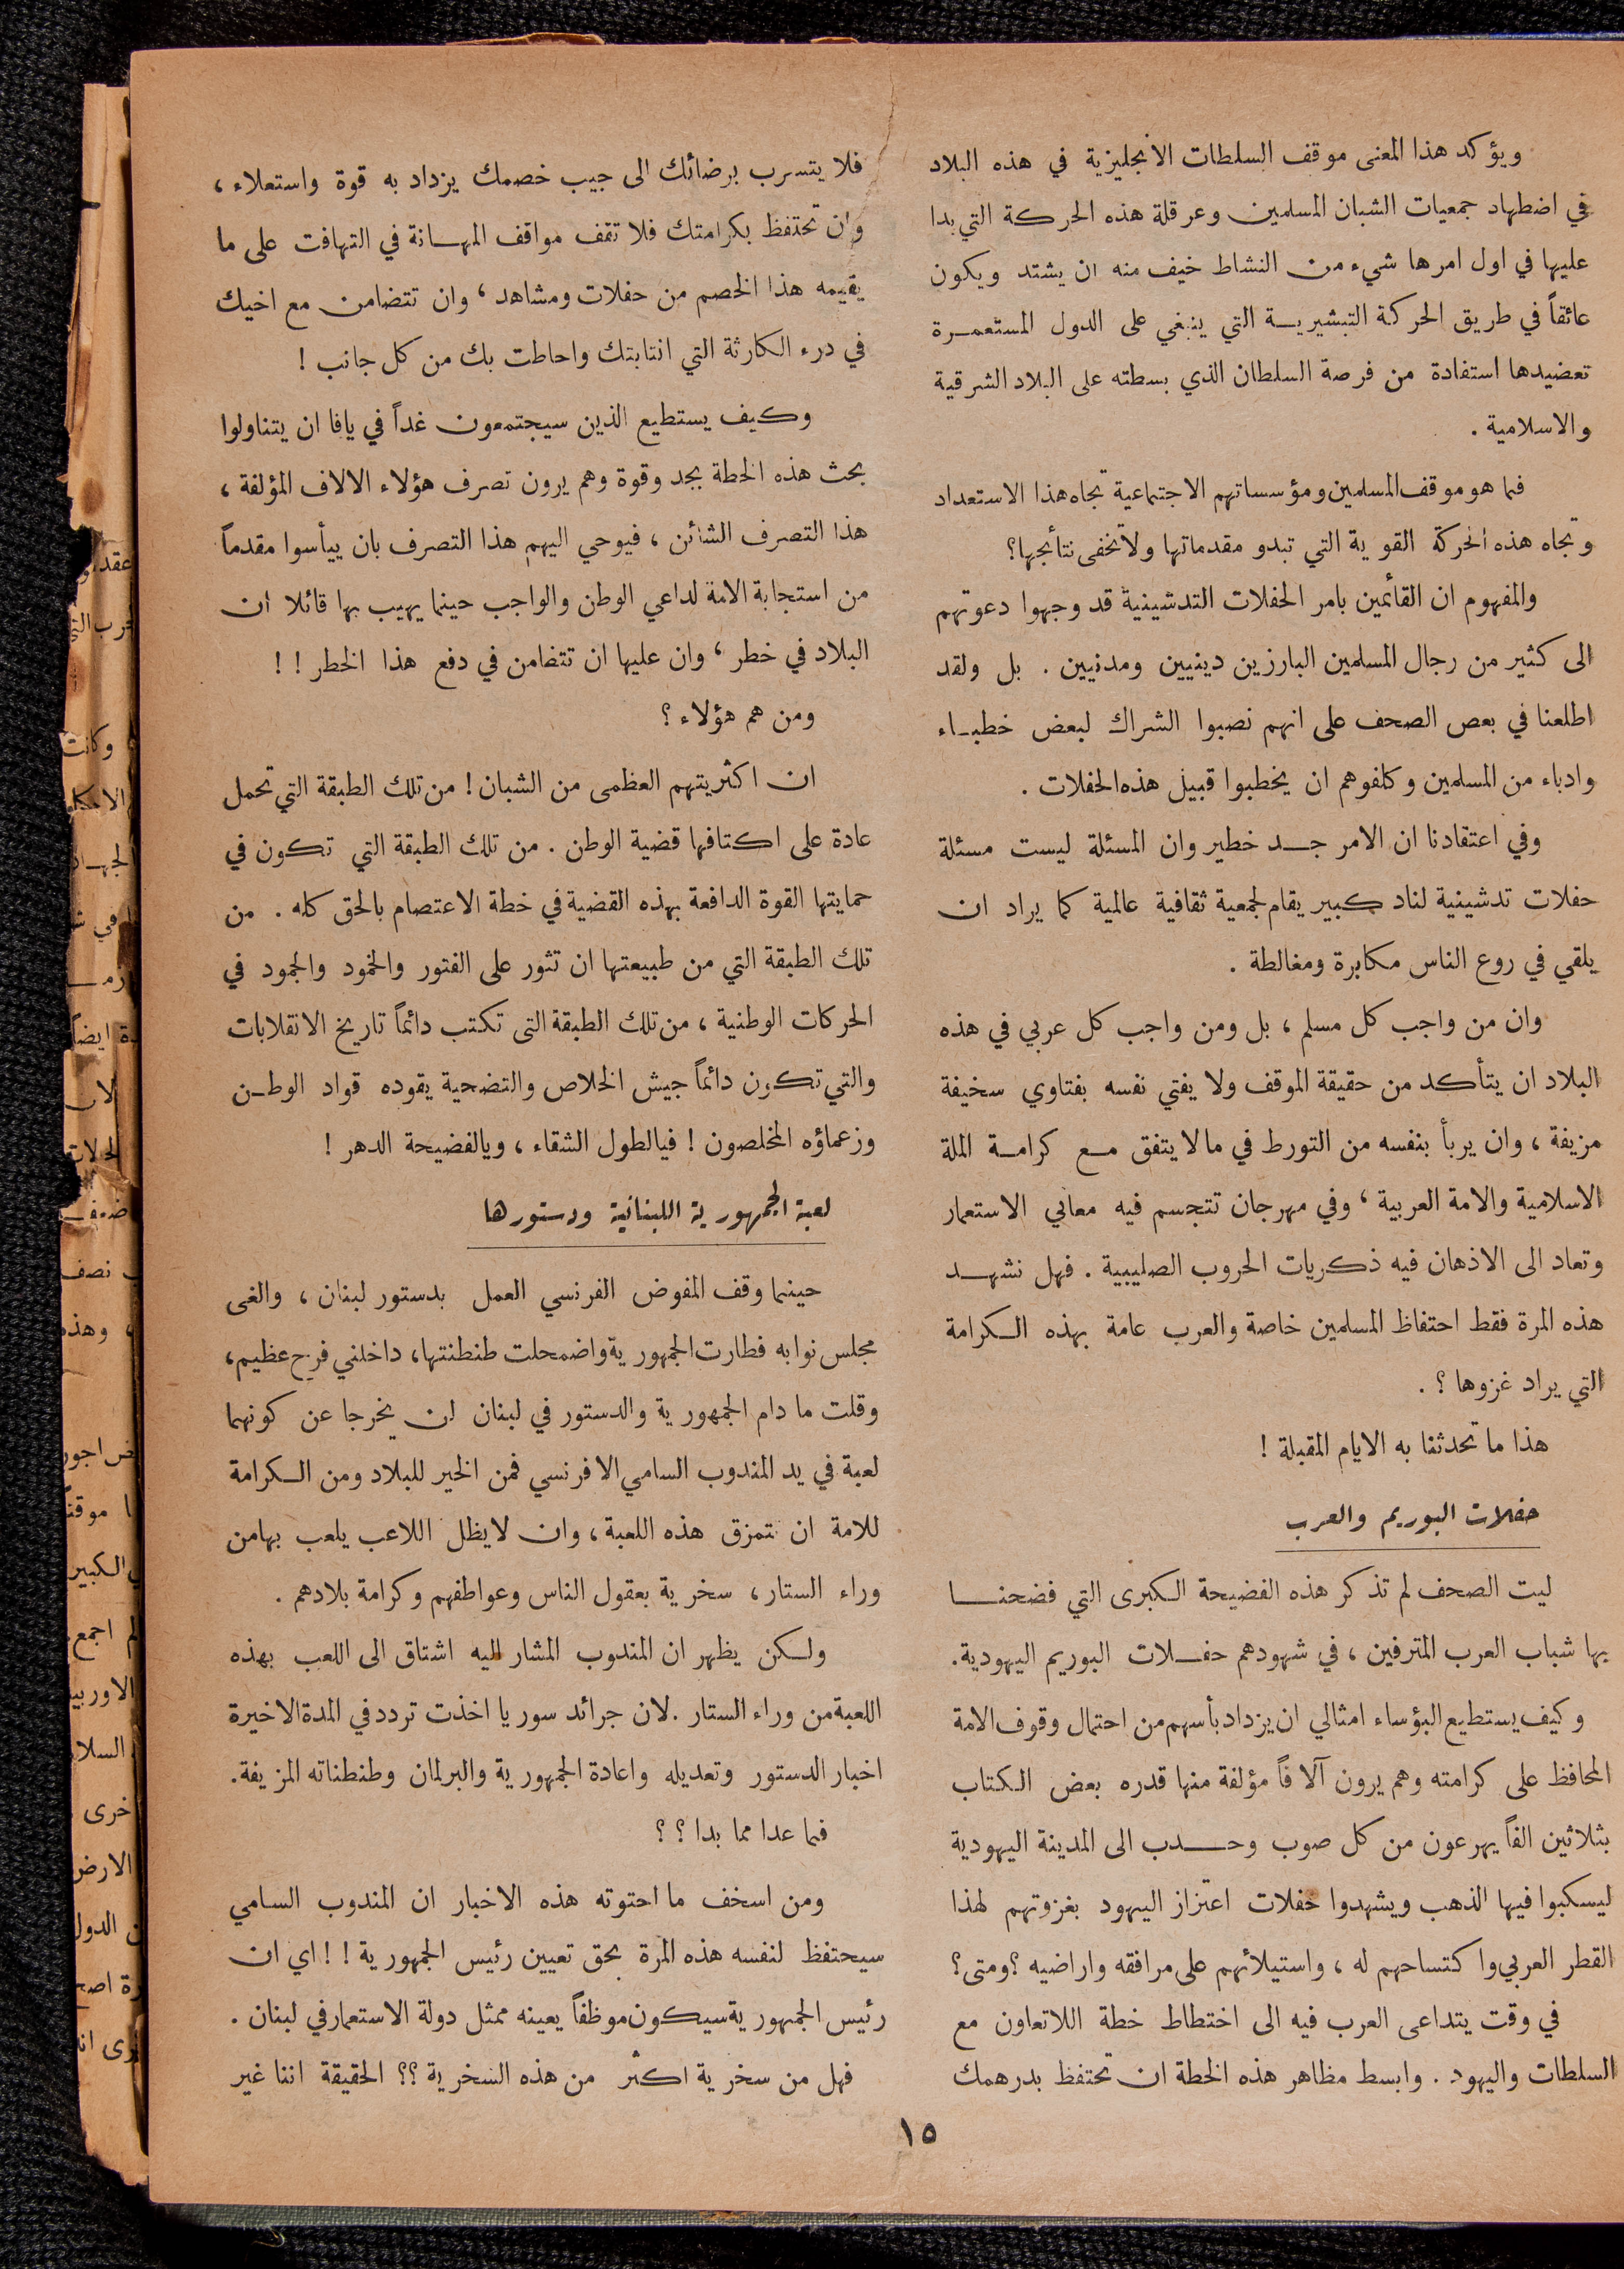 ويؤكد هذا المعنى موقف السلطات الانجليزية في هذه البلاد
في اضطهاد جمعيات الشبان المسلمين وعرقلة هذه الحركة التي بدا
عليها في اول امرها شيء من النشاط خيف منه ان يشتد ويكون
عائقاً في طريق الحركة التبشيرية التي ينبغي على الدول المستعمرة
تعضيدها استفادة من فرصة السلطان الذي بسطته على البلاد الشرقية
والاسلامية .
فما هو موقف المسلمين ومؤسساتهم الاجتماعية تجاه هذا الاستعداد
وتجاه هذه الحركة القوية التي تبدو مقدماتها ولا تخفى نتائجها؟
والمفهوم ان القائمين بامر الحفلات التدشينية قد وجهوا دعوتهم
الى كثير من رجال المسلمين البارزين دينيين ومدنيين . بل ولقد
اطلعنا في بعض الصحف على انهم نصبوا الشراك لبعض خطباء
وادباء من المسلمين وكلفوهم ان يخطبوا قبيل هذه الحفلات .
وفي اعتقادنا ان الامر جد خطير وان المسئلة ليست مسئلة
حفلات تدشينية لناد كبير يقام لجمعية ثقافية عالمية كما يراد ان
يلقي في روع الناس مكابرة ومغالطة .
وان من واجب كل مسلم ، بل ومن واجب كل عربي في هذه
البلاد ان يتأكد من حقيقة الموقف ولا يفتي نفسه بفتاوي سخيفة
مزيفة ، وان يربأ بنفسه من التورط في ما لا يتفق مع كرامة الملة
الاسلامية والامة العربية ، وفي مهرجان تتجسم فيه معاني الاستعمار
وتعاد الى الاذهان فيه ذكريات الحروب الصليبية . فهل نشهد
هذه المرة فقط احتفاظ المسلمين خاصة والعرب عامة بهذه الكرامة
التي يراد غزوها ؟ .
هذا ما تحدثنا به الايام المقبلة !
حفلات البوريم والعرب
ليت الصحف لم تذكر هذه الفضيحة الكبرى التي فضحنا
بها شباب العرب المترفين ، في شهودهم حفلات البوريم اليهودية.
وكيف يستطيع البؤساء امثالي ان يزداد بأسهم من احتمال وقوف الامة
المحافظ على كرامته وهم يرون آلافاً مؤلفة منها قدره بعض الكتاب
بثلاثين الفاً يهرعون من كل صوب وحدب الى المدينة اليهودية
ليسكبوا فيها الذهب ويشهدوا حفلات اعتزاز اليهود بغزوتهم لهذا
القطر العربي واكتساحهم له ، واستيلائهم على مرافقه واراضيه ؟ ومتى ؟
في وقت يتداعى العرب فيه الى اختطاط خطة اللاتعاون مع
السلطات واليهود . وابسط مظاهر هذه الخطة ان تحتفظ بدرهمك
فلا يتسرب برضائك الى جيب خصمك يزداد به قوة واستعلاء ،
وان تحتفظ بكرامتك فلا تقف مواقف المهانة في التهافت على ما
يقيمه هذا الخصم من حفلات ومشاهد ، وان تتضامن مع اخيك
في درء الكارثة التي انتابتك واحاطت بك من كل جانب !
وكيف يستطيع الذين سيجتمعون غداً في يافا ان يتناولوا
بحث هذه الخطة بجد وقوة وهم يرون تصرف هؤلاء الالاف المؤلفة ،
هذا التصرف الشائن ، فيوحي اليهم هذا التصرف بان ييأسوا مقدماً
من استجابة الامة لداعي الوطن والواجب حينما يهيب بها قائلا ان
البلاد في خطر ، وان عليها ان تتضامن في دفع هذا الخطر ! !
ومن هم هؤلاء ؟
ان اكثريتهم العظمى من الشبان ! من تلك الطبقة التي تحمل
عادة على اكتافها قضية الوطن . من تلك الطبقة التي تكون في
حمايتها القوة الدافعة بهذه القضية في خطة الاعتصام بالحق كله . من
تلك الطبقة التي من طبيعتها ان تثور على الفتور والخمود والجمود في
الحركات الوطنية ، من تلك الطبقة التى تكتب دائماً تاريخ الانقلابات
والتي تكون دائماً جيش الخلاص والتضحية يقوده قواد الوطن
وزعماؤه المخلصون ! فيالطول الشقاء ، ويالفضيحة الدهر !
لعبة الجمهورية اللبنانية ودستورها
حينما وقف المفوض الفرنسي العمل بدستور لبنان ، والغى
مجلس نوابه فطارت الجمهورية واضمحلت طنطنتها، داخلني فرح عظيم،
وقلت ما دام الجمهورية والدستور في لبنان لن يخرجا عن كونهما
لعبة في يد المندوب السامي الافرنسي فمن الخير للبلاد ومن الكرامة
للامة ان تتمزق هذه اللعبة ، وان لا يظل اللاعب يلعب بها من
وراء الستار ، سخرية بعقول الناس وعواطفهم وكرامة بلادهم .
ولكن يظهر ان المندوب المشار اليه اشتاق الى اللعب بهذه
اللعبة من وراء الستار . لان جرائد سوريا اخذت تردد في المدة الاخيرة
اخبار الدستور وتعديله واعادة الجمهورية والبرلمان وطنطناته المزيفة.
فما عدا مما بدا ؟ ؟
ومن اسخف ما احتوته هذه الاخبار ان المندوب السامي
سيحتفظ لنفسه هذه المرة بحق تعيين رئيس الجمهورية ! ! اي ان
رئيس الجمهورية سيكون موظفاً يعينه ممثل دولة الاستعمار في لبنان .
فهل من سخرية اكثر من هذه السخرية ؟؟ الحقيقة اننا غير
١٥